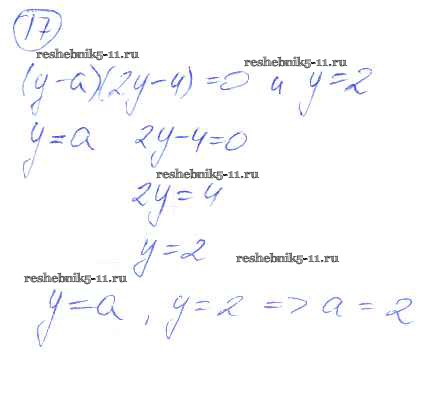 17
reshebnik5-11.ru
reshebnik5-11.ru
(y-a)(2y-4)=0 и y=2
y=a 2y-4=0
reshebnik5-11.ru
2y=4
y=2
reshebnik5-11.ru
reshebnik5-11.ru
y=a, y=2 => a=2